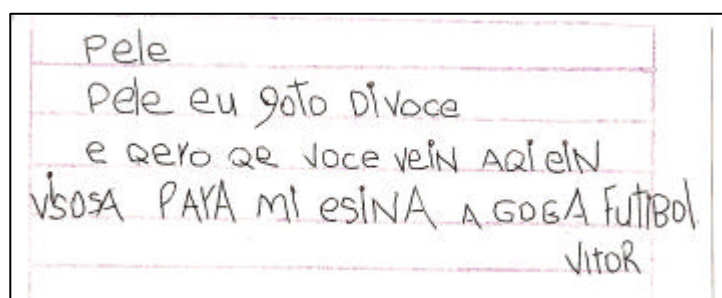 Pele
Pele eu goto Di voce
e qero qe voce vein AQi eiN
visosA PARA mi esiNA A GOGA FUTiBOl
ViTOR